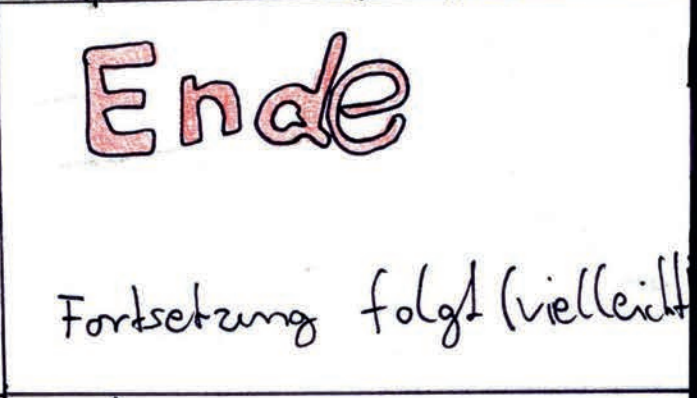 Ende
Fortsetzung folgt (vielleicht